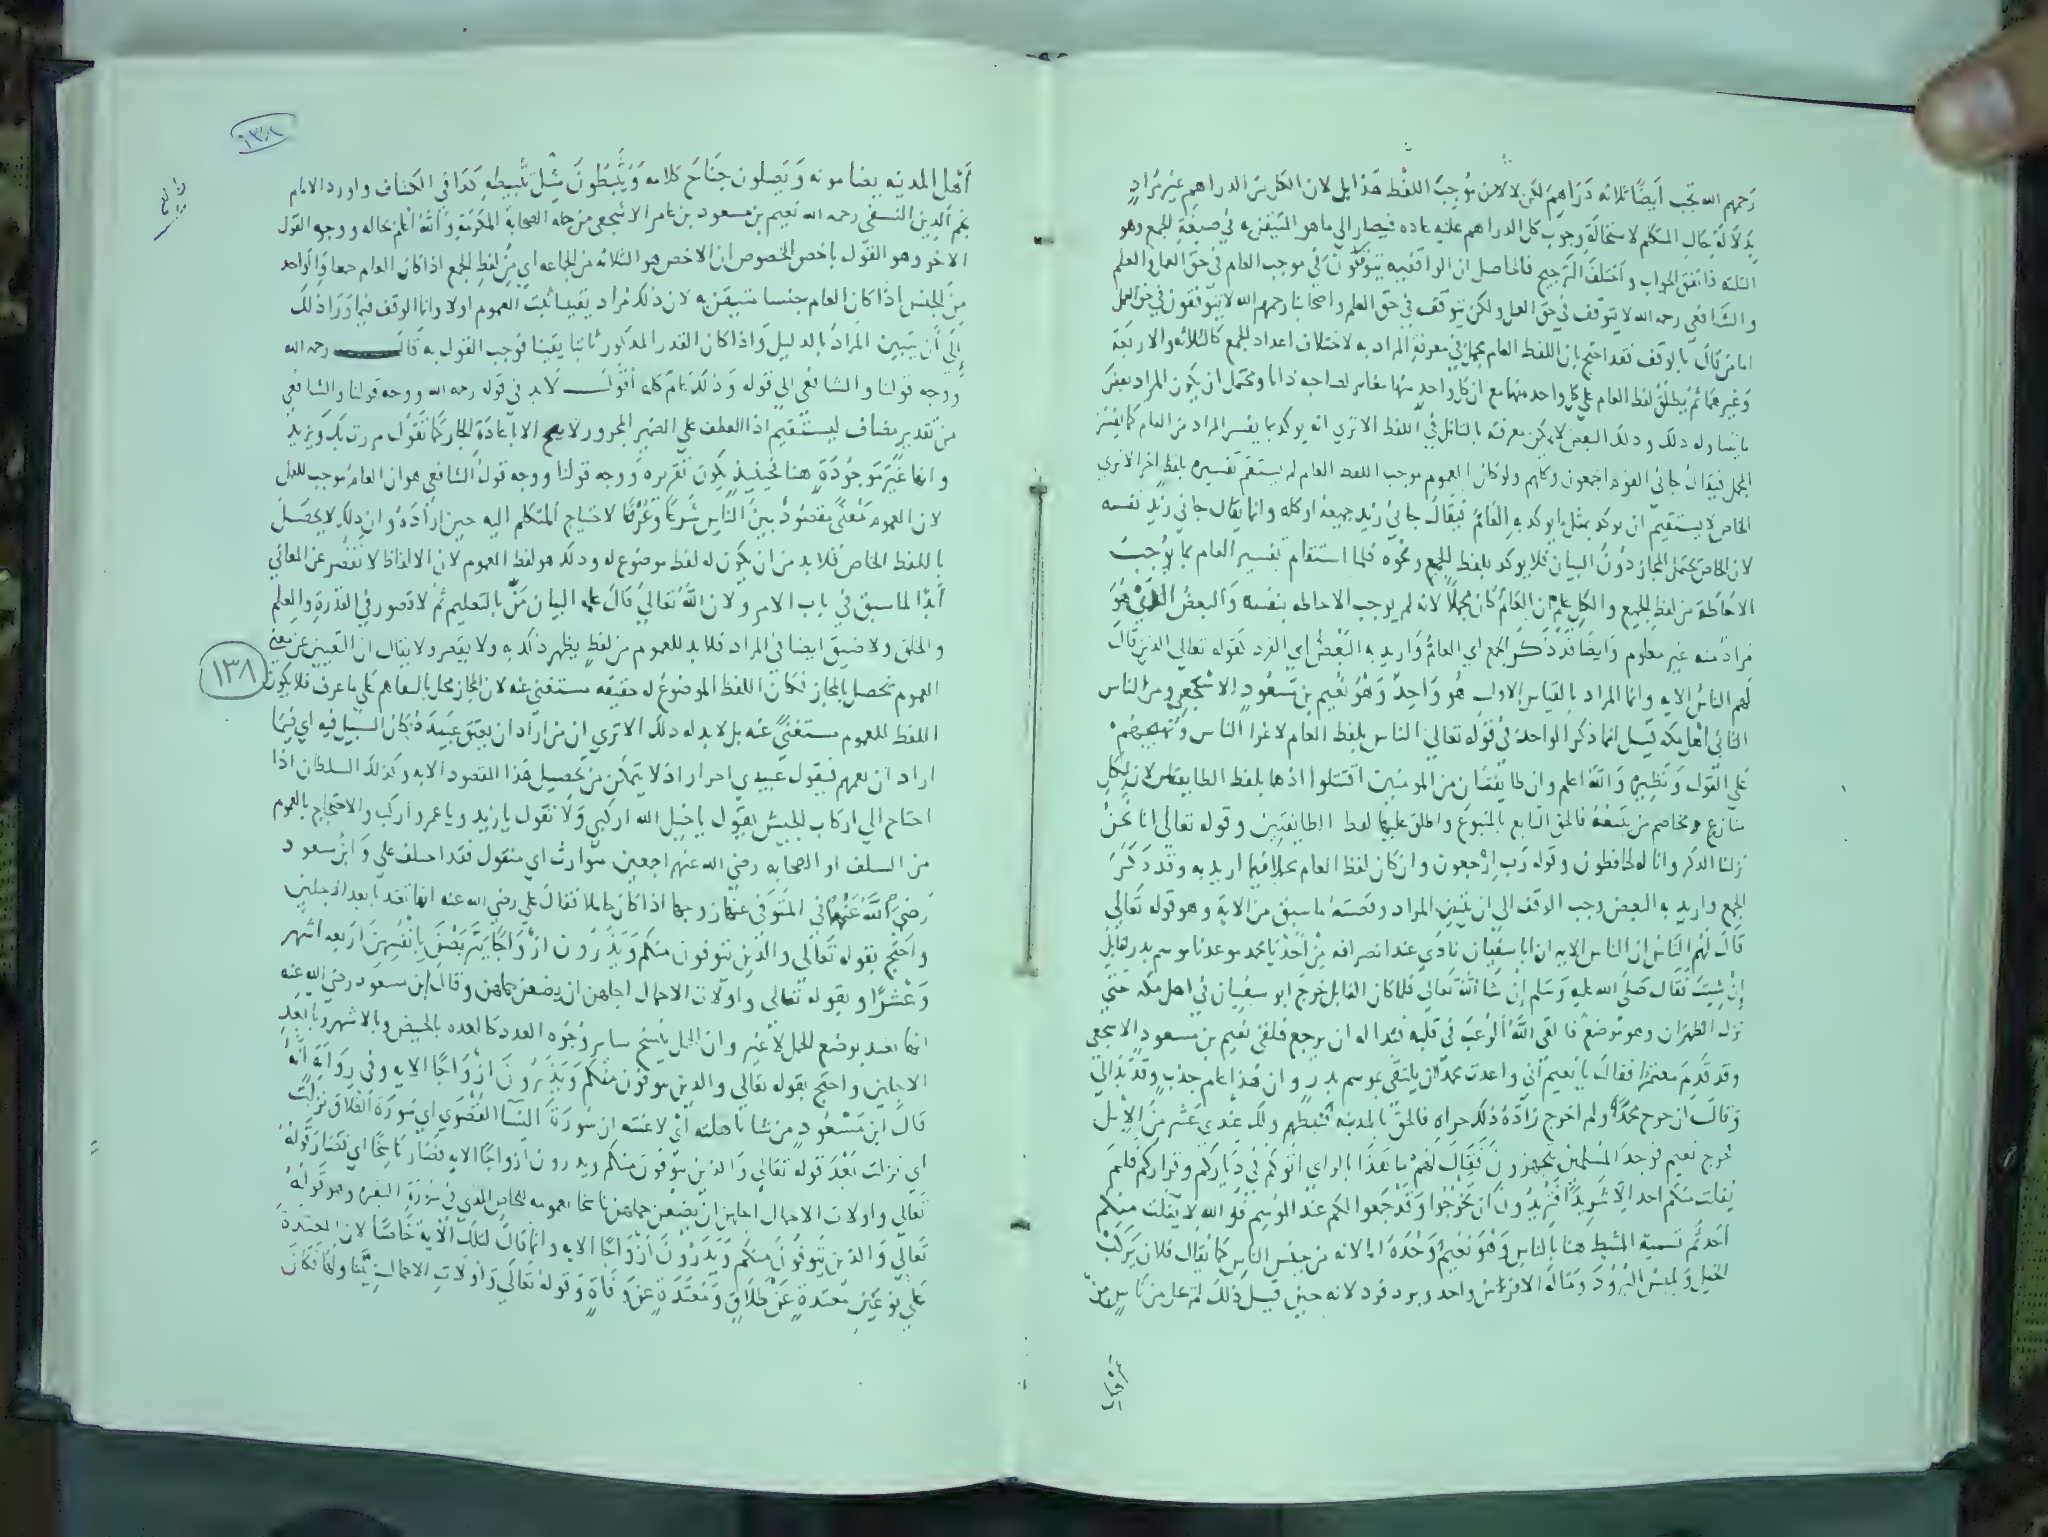 رحمهم الله يجب ايضا ثلاثة دراهم لكن لا لان موجب اللفظ هذا بل لان الكل من الدراهم غير مراد
بدلالة حال المتكلم لاستحالة وجوب كل الدراهم عليه عاده فيصار الى ما هو المتيقن به في صيغة الجمع وهو
الثلثه فاتفق الجواب واختلف الترجيح فالحاصل ان الواقفيه يتوقفون في موجب العام في حق العمل والعلم
والشافعي رحمه الله لا يتوقف في حق العمل ولكن يتوقف في حق العلم واصحابنا رحمهم الله لا يتوقفون في حق العمل
اما من قال بالوقف فقد احتج بان اللفظ العام مجمل في معرفة المراد به لاختلاف اعداد الجمع كالثلاثه والاربعة
وغيرهما ثم يطلق لفظ العام على كل واحد منها مع ان كل واحد منها مغاير لصاحبه ذاتا ويحتمل ان يكون المراد بعض
ما يتناوله ذلك وذلك البعض لا يمكن معرفته بالتامل في اللفظ الا ترى انه يوكد بما يفسر المراد من العام كما يفسر
المجمل فيقال جاني القوم اجمعون وكلهم ولو كان العموم موجب اللفظ العام لم يستقم تفسيره بلفظ اخر الا ترى
الخاص لا يستقيم ان يوكد بمثل ما يوكد به العام فيقال جاني زيد جميعه او كله وانما يقال جاني زيد نفسه
لان الخاص يحتمل المجاز دون البيان فلا يوكد بلفظ الجمع ونحوه فلما استقام تفسير العام بما يوجب
الاحاطة من لفظ الجمع والكل علم ان العام كان مجملا لانه لم يوجب الاحاطه بنفسه والبعض الذي هو
مراد منه غير معلوم وايضا قد ذكر الجمع اي العام واريد به البعض اي الفرد كقوله تعالى الذين قال
لهم الناس الايه وانما المراد بالناس الاول هو واحد وهو نعيم بن مسعود الاشجعي ومن الناس
الثاني اهل مكه قيل انما ذكر الواحد في قوله تعالى الناس بلفظ العام لاغرا الناس وتهييجهم
على القول ونظيره والله اعلم وان طايفتان من المومنين اقتتلوا
منازع ومخاصم من يتبعه فالحق التابع بالمتبوع واطلق عليهما لفظ الطايفتين وقوله تعالى انا نحن
نزلنا الذكر وانا له لحافظون وقوله رب ارجعون وان كان لفظ العام مجملا فيما اريد به وقد ذكر
الجمع واريد به البعض وجب الوقف الى ان يتبين المراد وقصته ما سبق من الاية وهو قوله تعالى
قال لهم الناس ان الناس الايه ان ابا سفيان نادى عند انصرافه من احد يا محمد موعدنا موسم بدر لقابل
ان شيت فقال صلى الله عليه وسلم ان شا الله تعالى فلما كان القابل خرج ابو سفيان في اهل مكه حتى
نزل الظهران وهو موضع فالقى الله الرعب في قلبه فبدا له ان يرجع فلقي نعيم بن مسعود الاشجعي
وقد قدم معتمرا فقال يا نعيم اني واعدت محمدا ان يلتقي بموسم بدر وان هذا عام جدب وقد بدا لي
وقال ان خرج محمد ولم اخرج زاده ذلك جراه فالحق بالمدينه فثبطهم ولك عندي عشر من الابل
فخرج نعيم فوجد المسلمين يتجهزون فقال لهم ما هذا بالراي اتوكم في دياركم وقراركم فلم
يفلت منكم احد الا شريدا افتريدون ان تخرجوا وقد جمعوا لكم عند الموسم فوالله لا يفلت منكم
احد ثم تسمية المثبط هنا بالناس وهو نعيم وحده اما لانه من جنس الناس كما يقال فلان يركب
الخيل ويلبس البرود وماله الا فرس واحد وبرد فرد لانه حين قيل ذلك لم يخل من ناس من
اهل المدينه يضامونه ويصلون جناح كلامه ويثبطون مثل تثبيطه كذا في الكشاف واورد الامام
نجم الدين النسفي رحمه الله نعيم بن مسعود بن عامر الاشجعي من جمله الصحابة المكرمة والله اعلم بحاله ووجه القول
الاخر وهو القول باخص الخصوص ان الاخص هو الثلاثه من الجماعه اي من لفظ الجمع اذا كان العام جمعا والواحد
من الجنس اذا كان العام جنسا متيقن به لان ذلك مراد بيقين
الى ان يتبين المراد بالدليل واذا كان القدر المذكور ثابتا يقينا فوجب القول به قال رحمه الله
ووجه قولنا والشافعي الى قوله وذلك عام كله اقول لابد في قوله رحمه الله ووجه قولنا والشافعي
من تقدير مضاف ليستقيم اذ العطف على الضمير المجرور لا يصح الا باعادة الجار كما تقول مررت بك وبزيد
وانها غير موجودة هنا فحينيذ يكون تقريره ووجه قولنا ووجه قول الشافعي هو ان العام موجب للعمل
لان العموم معنى مقصود بين الناس شرعا وعرفا لاحتياج المتكلم اليه حين اراده وان ذلك لا يحصل
باللفظ الخاص فلا بد من ان يكون له لفظ موضوع له وذلك هو لفظ العموم لان الالفاظ لا تقصر عن المعاني
ابدا لما سبق في باب الامر ولان الله تعالى قال علمه البيان من بالتعليم ثم لا قصور في القدرة والعلم
والخلق ولا ضيق ايضا في المراد فلا بد للعموم من لفظ يظهر ذلك به ولا يقصر ولا يقال ان التعبير عن معنى
العموم تحصل بالمجاز فكان اللفظ الموضوع له حقيقه مستغنى عنه لان المجاز فلا يكون
اللفظ للعموم مستغنى عنه بل لا بد له ذلك الا ترى ان من اراد ان يعتق عبيده كان السبيل فيه اي فيما
اراد ان يعمهم فيقول عبيدي احرار اذ لا يتمكن من تحصيل هذا المقصود الا به وكذلك السلطان اذا
احتاج الى اركاب الجيش يقول يا خيل الله اركبي ولا نقول يا زيد ويا عمرو اركب والاحتجاج بالعموم
من السلف او الصحابه رضي الله عنهم اجمعين متوارث اي منقول فقد اختلف علي وابن مسعود
رضي الله عنهما في المتوفى عنها زوجها اذا كان حاملا فقال علي رضي الله عنه انها تعتد بابعد الاجلين
واحتج بقوله تعالى والذين يتوفون منكم ويذرون ازواجا يتربصن بانفسهن اربعه اشهر
وعشرا وبقوله تعالى واولات الاحمال اجلهن ان يضعن حملهن وقال ابن مسعود رضي الله عنه
انها تعتد بوضع الحمل لا غير وان الحمل ينسخ ساير وجوه العدد كالعده بالحيض وبالاشهر وبابعد
الاجلين واحتج بقوله تعالى والذين يتوفون منكم ويذرون ازواجا الايه وفي رواية انه
قال ابن مسعود من شا باهلته اي لاعنته ان سورة النسا القصوى اي سورة الطلاق نزلت
اي نزلت بعد قوله تعالى والذين يتوفون منكم ويذرون ازواجا الايه فصار ناسخا اي فصار قوله
تعالى واولات الاحمال اجلهن ان يضعن حملهن ناسخا بعمومه للخاص الذي في سورة البقرة وهو قوله
تعالى والذين يتوفون منكم ويذرون ازواجا الايه وانما قال لتلك الاية خاصا لان المعتدة
على نوعين معتدة عن طلاق ومعتدة عن وفاة وقوله تعالى واولات الاحمال يتناولهما فكان
١٣٨